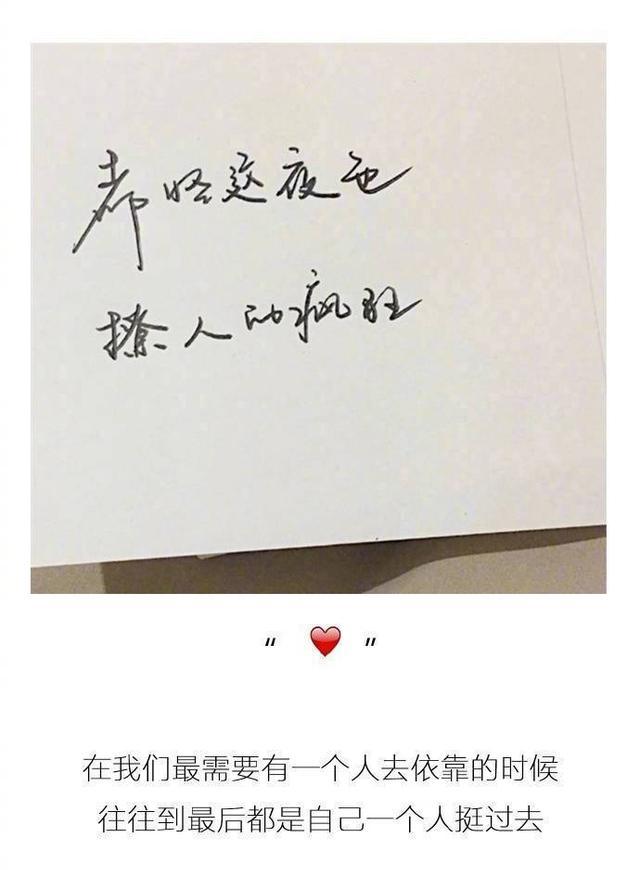 都怪这夜色
撩人的疯狂
“ ❤ ”
在我们最需要有一个人去依靠的时候
往往到最后都是自己一个人挺过去